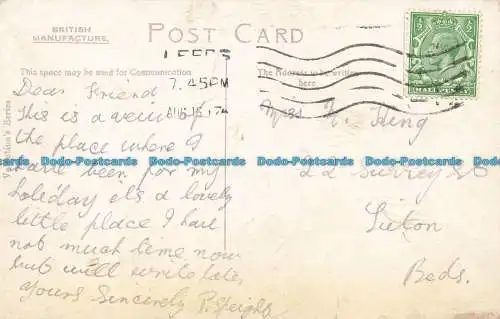 BRITISH
MANUFACTURE.
POST CARD
LEEDS
7.45PM
This space may be used for Communication
The Address to be written
here.
HALF PENNY
Valentine's Series
Dear Friend
This is a view of
the place where I
have been for my
holiday its a lovely
little place I have
not much time now
but will write later
Yours Sincerely P.
Miss King
Surrey St
Luton
Beds.
Dodo-Postcards Dodo-Postcards Dodo-Postcards Dodo-Postcards Dodo-Postcards
Dodo-Postcards Dodo-Postcards Dodo-Postcards Dodo-Postcards Dodo-Postcards